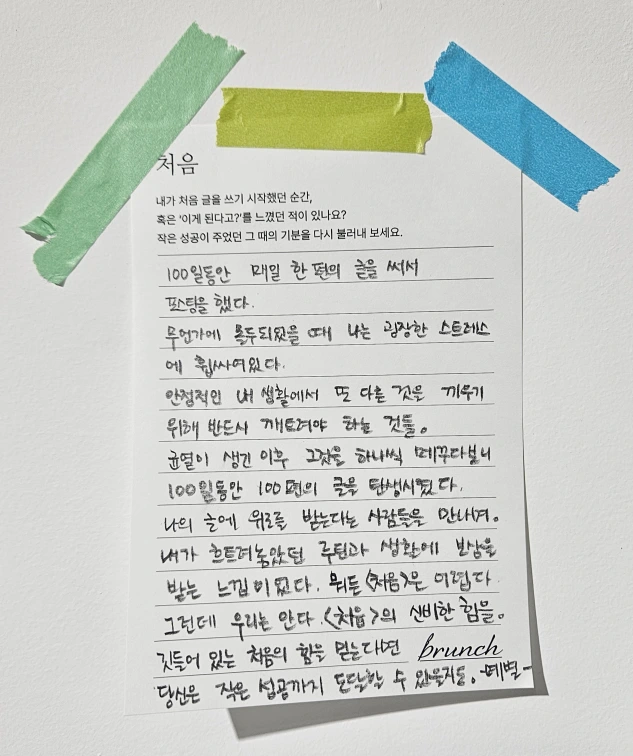 처음
내가 처음 글을 쓰기 시작했던 순간,
혹은 '이게 된다고?'를 느꼈던 적이 있나요?
작은 성공이 주었던 그 때의 기분을 다시 불러내 보세요.
100일동안 매일 한 편의 글을 써서
포스팅을 했다.
무언가에 몰두되었을 때 나는 굉장한 스트레스
에 휩싸여있다.
안정적인 내 생활에서 또 다른 것을 끼우기
위해 반드시 깨트려야 하는 것들。
균열이 생긴 이후 그것을 하나씩 메꾸다보니
100일동안 100편의 글을 탄생시켰다.
나의 글에 위로를 받는다는 사람들을 만나며。
내가 흐트려놓았던 루틴과 생활에 보상을
받는 느낌이었다. 뭐든 <처음>은 어렵다.
그런데 우리는 안다. <처음>의 신비한 힘을。
깃들어 있는 처음의 힘을 믿는다면 brunch
당신은 작은 성공까지 도달할 수 있을지도. -예별-